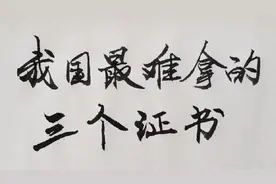 我国最难拿的
三个证书